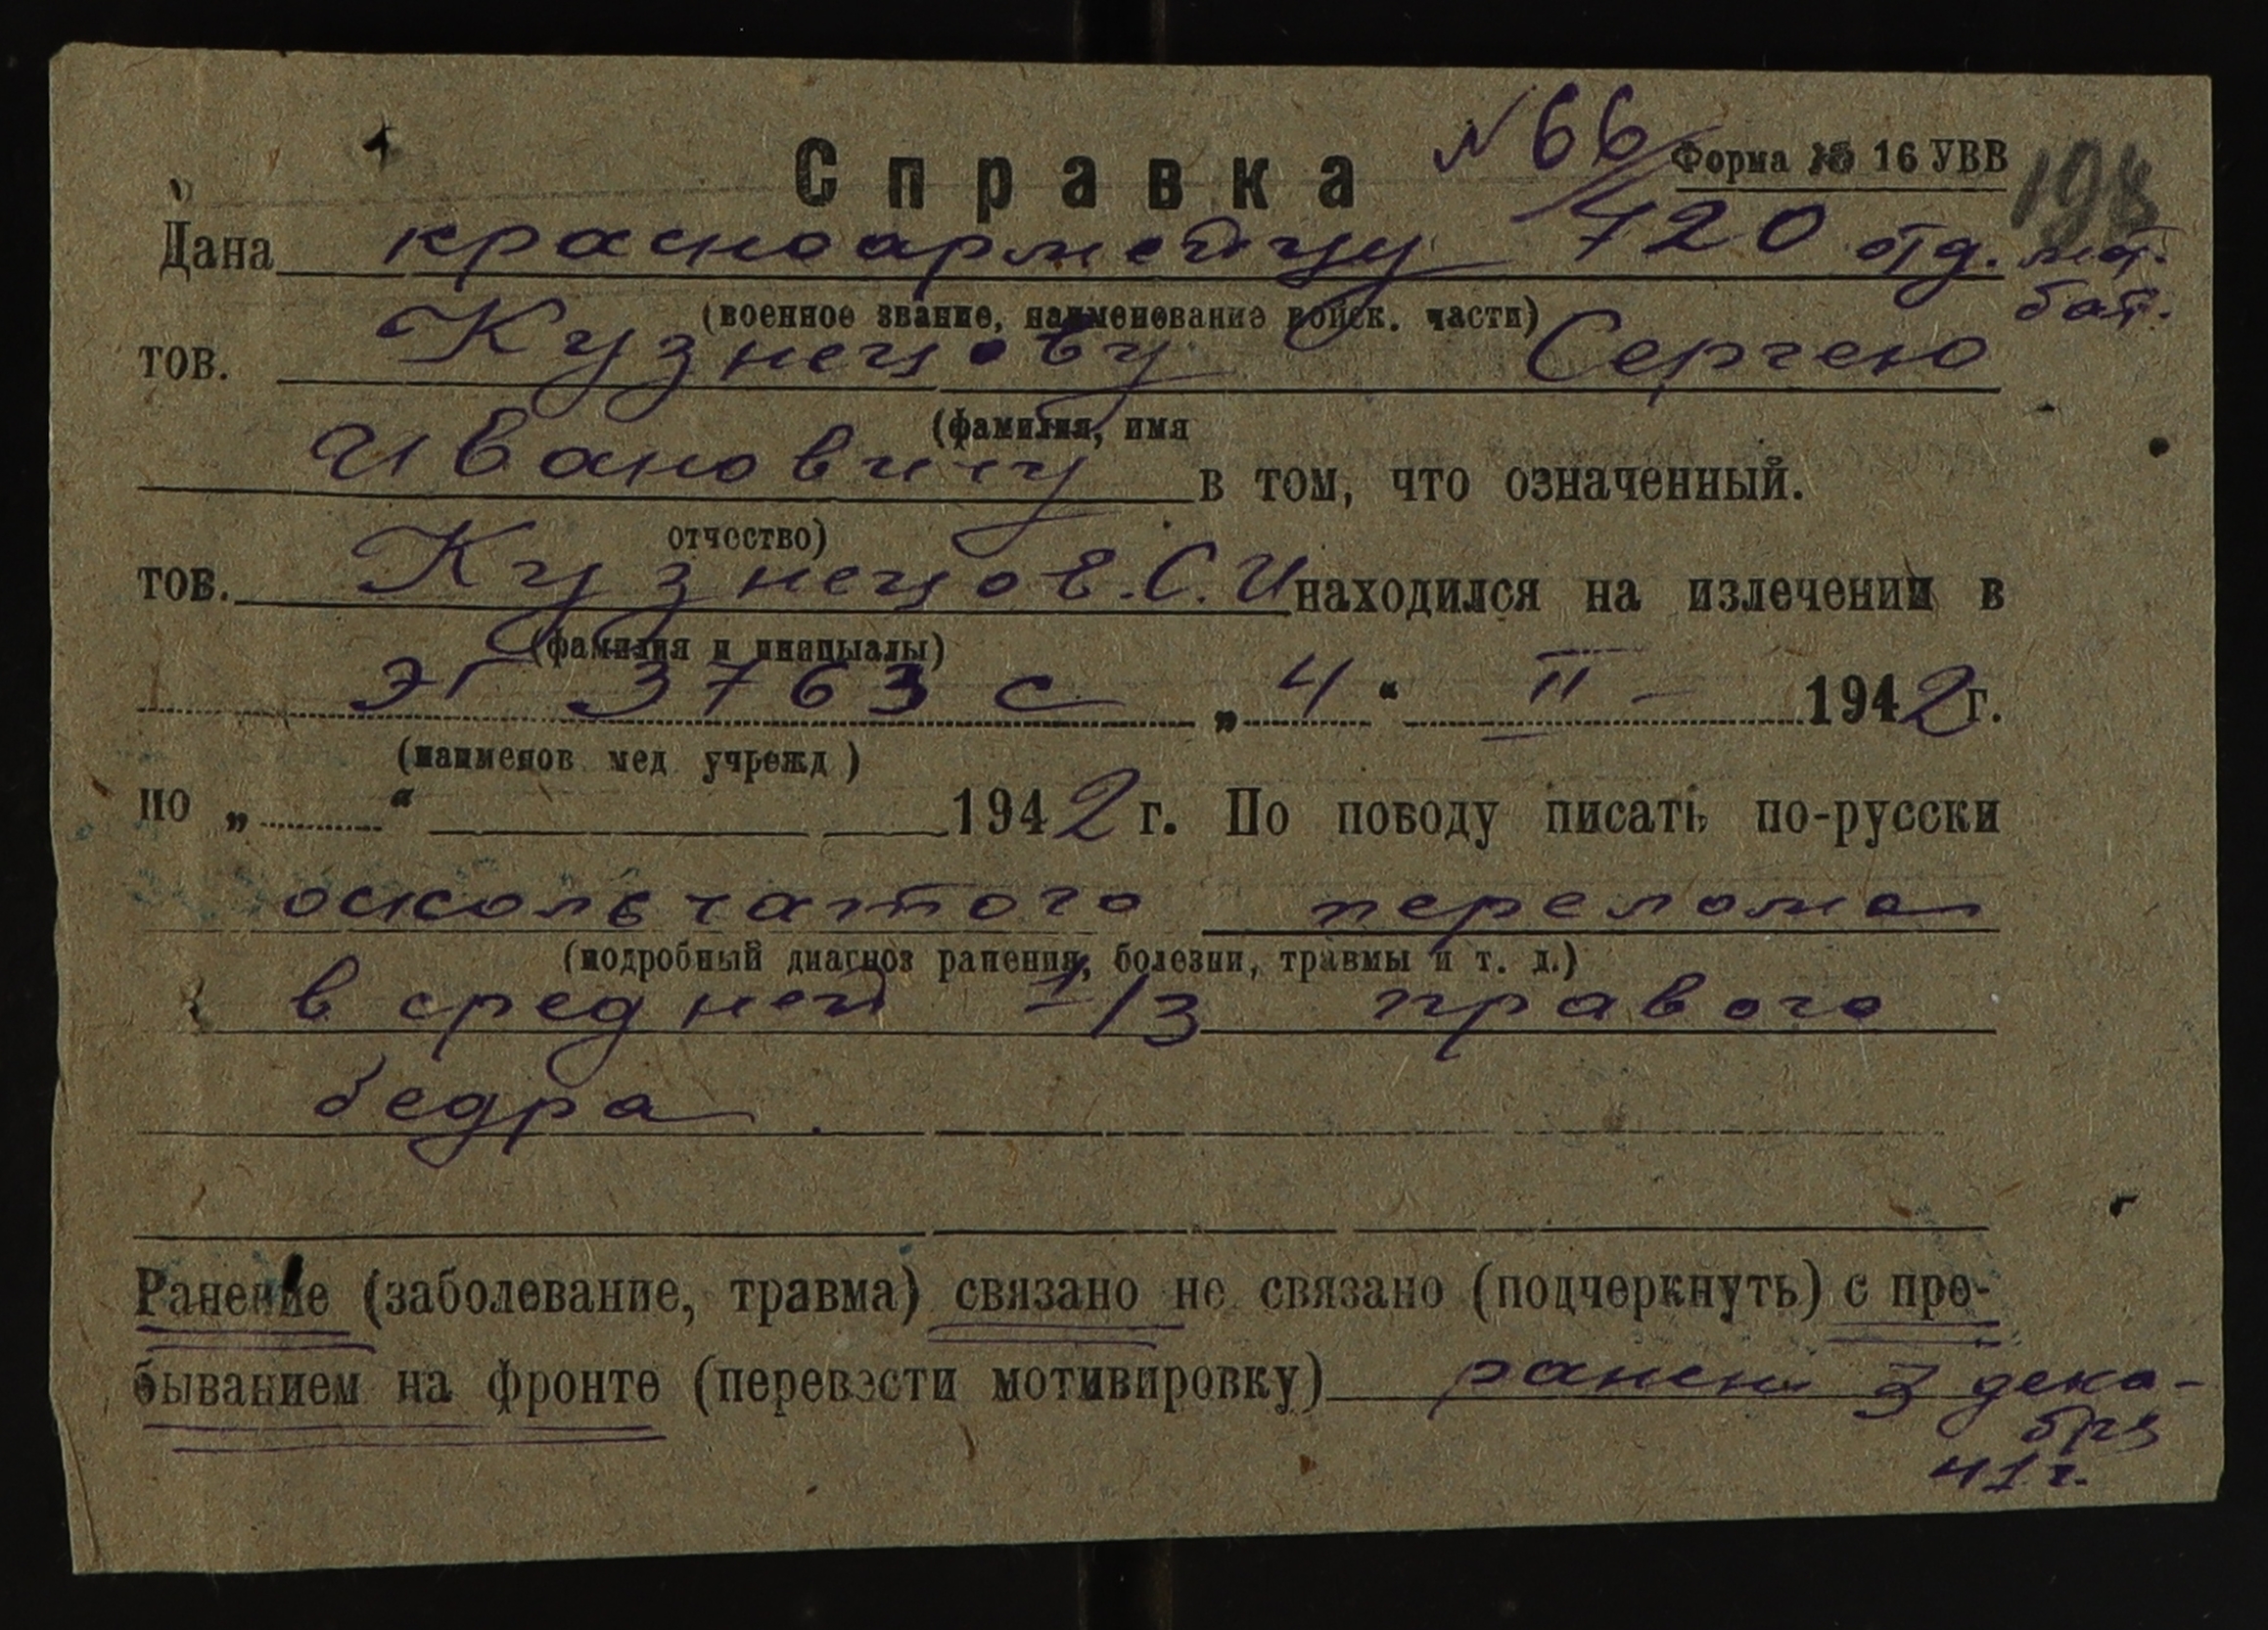 Справка №66 Форма № 16 УВВ
198
Дана красноармейцу 720 отд. мот. бат.
(военное звание, наименование войск. части)
тов. Кузнецову Сергею
(фамилия, имя
Ивановичу в том, что означенный.
отчество)
тов. Кузнецов. С. И находился на излечении в
(фамилия и инициалы)
ЭГ 3763 с „4“ II 1942 г.
(наименов мед учрежд)
по „ “ 1942 г. По поводу писать по-русски
оскольчатого перелома
(подробный диагноз ранения, болезни, травмы и т. д.)
в средней 1/3 правого
бедра.
Ранение (заболевание, травма) связано не связано (подчеркнуть) с пре-
быванием на фронте (перевести мотивировку) ранен 3 дека-
бря
41 г.